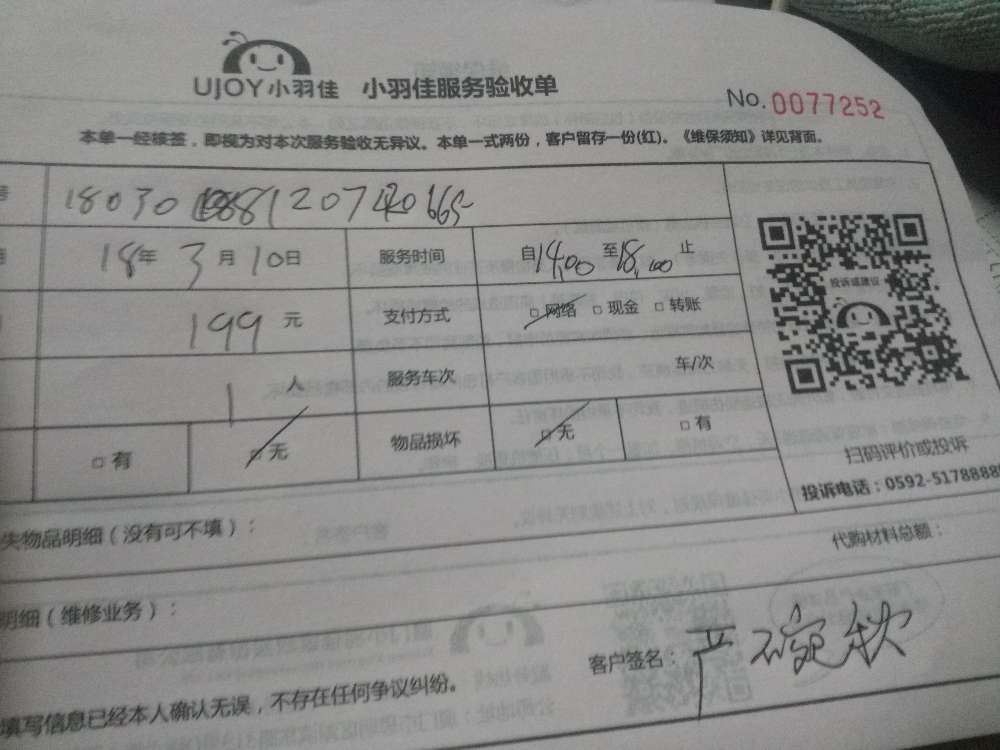 UJOY小羽佳 小羽佳服务验收单
No. 0077252
本单一经核签，即视为对本次服务验收无异议。本单一式两份，客户留存一份(红)。《维保须知》详见背面。
号
18年3月10日 服务时间 自14:00至18:00止
199元 支付方式 □网络 □现金 □转账
1人 服务车次 车/次
□有 □无 物品损坏 □无 □有
投诉或建议
扫码评价或投诉
投诉电话：0592-5178888
失物品明细（没有可不填）：
代购材料总额：
明细（维修业务）：
客户签名：严
填写信息已经本人确认无误，不存在任何争议纠纷。